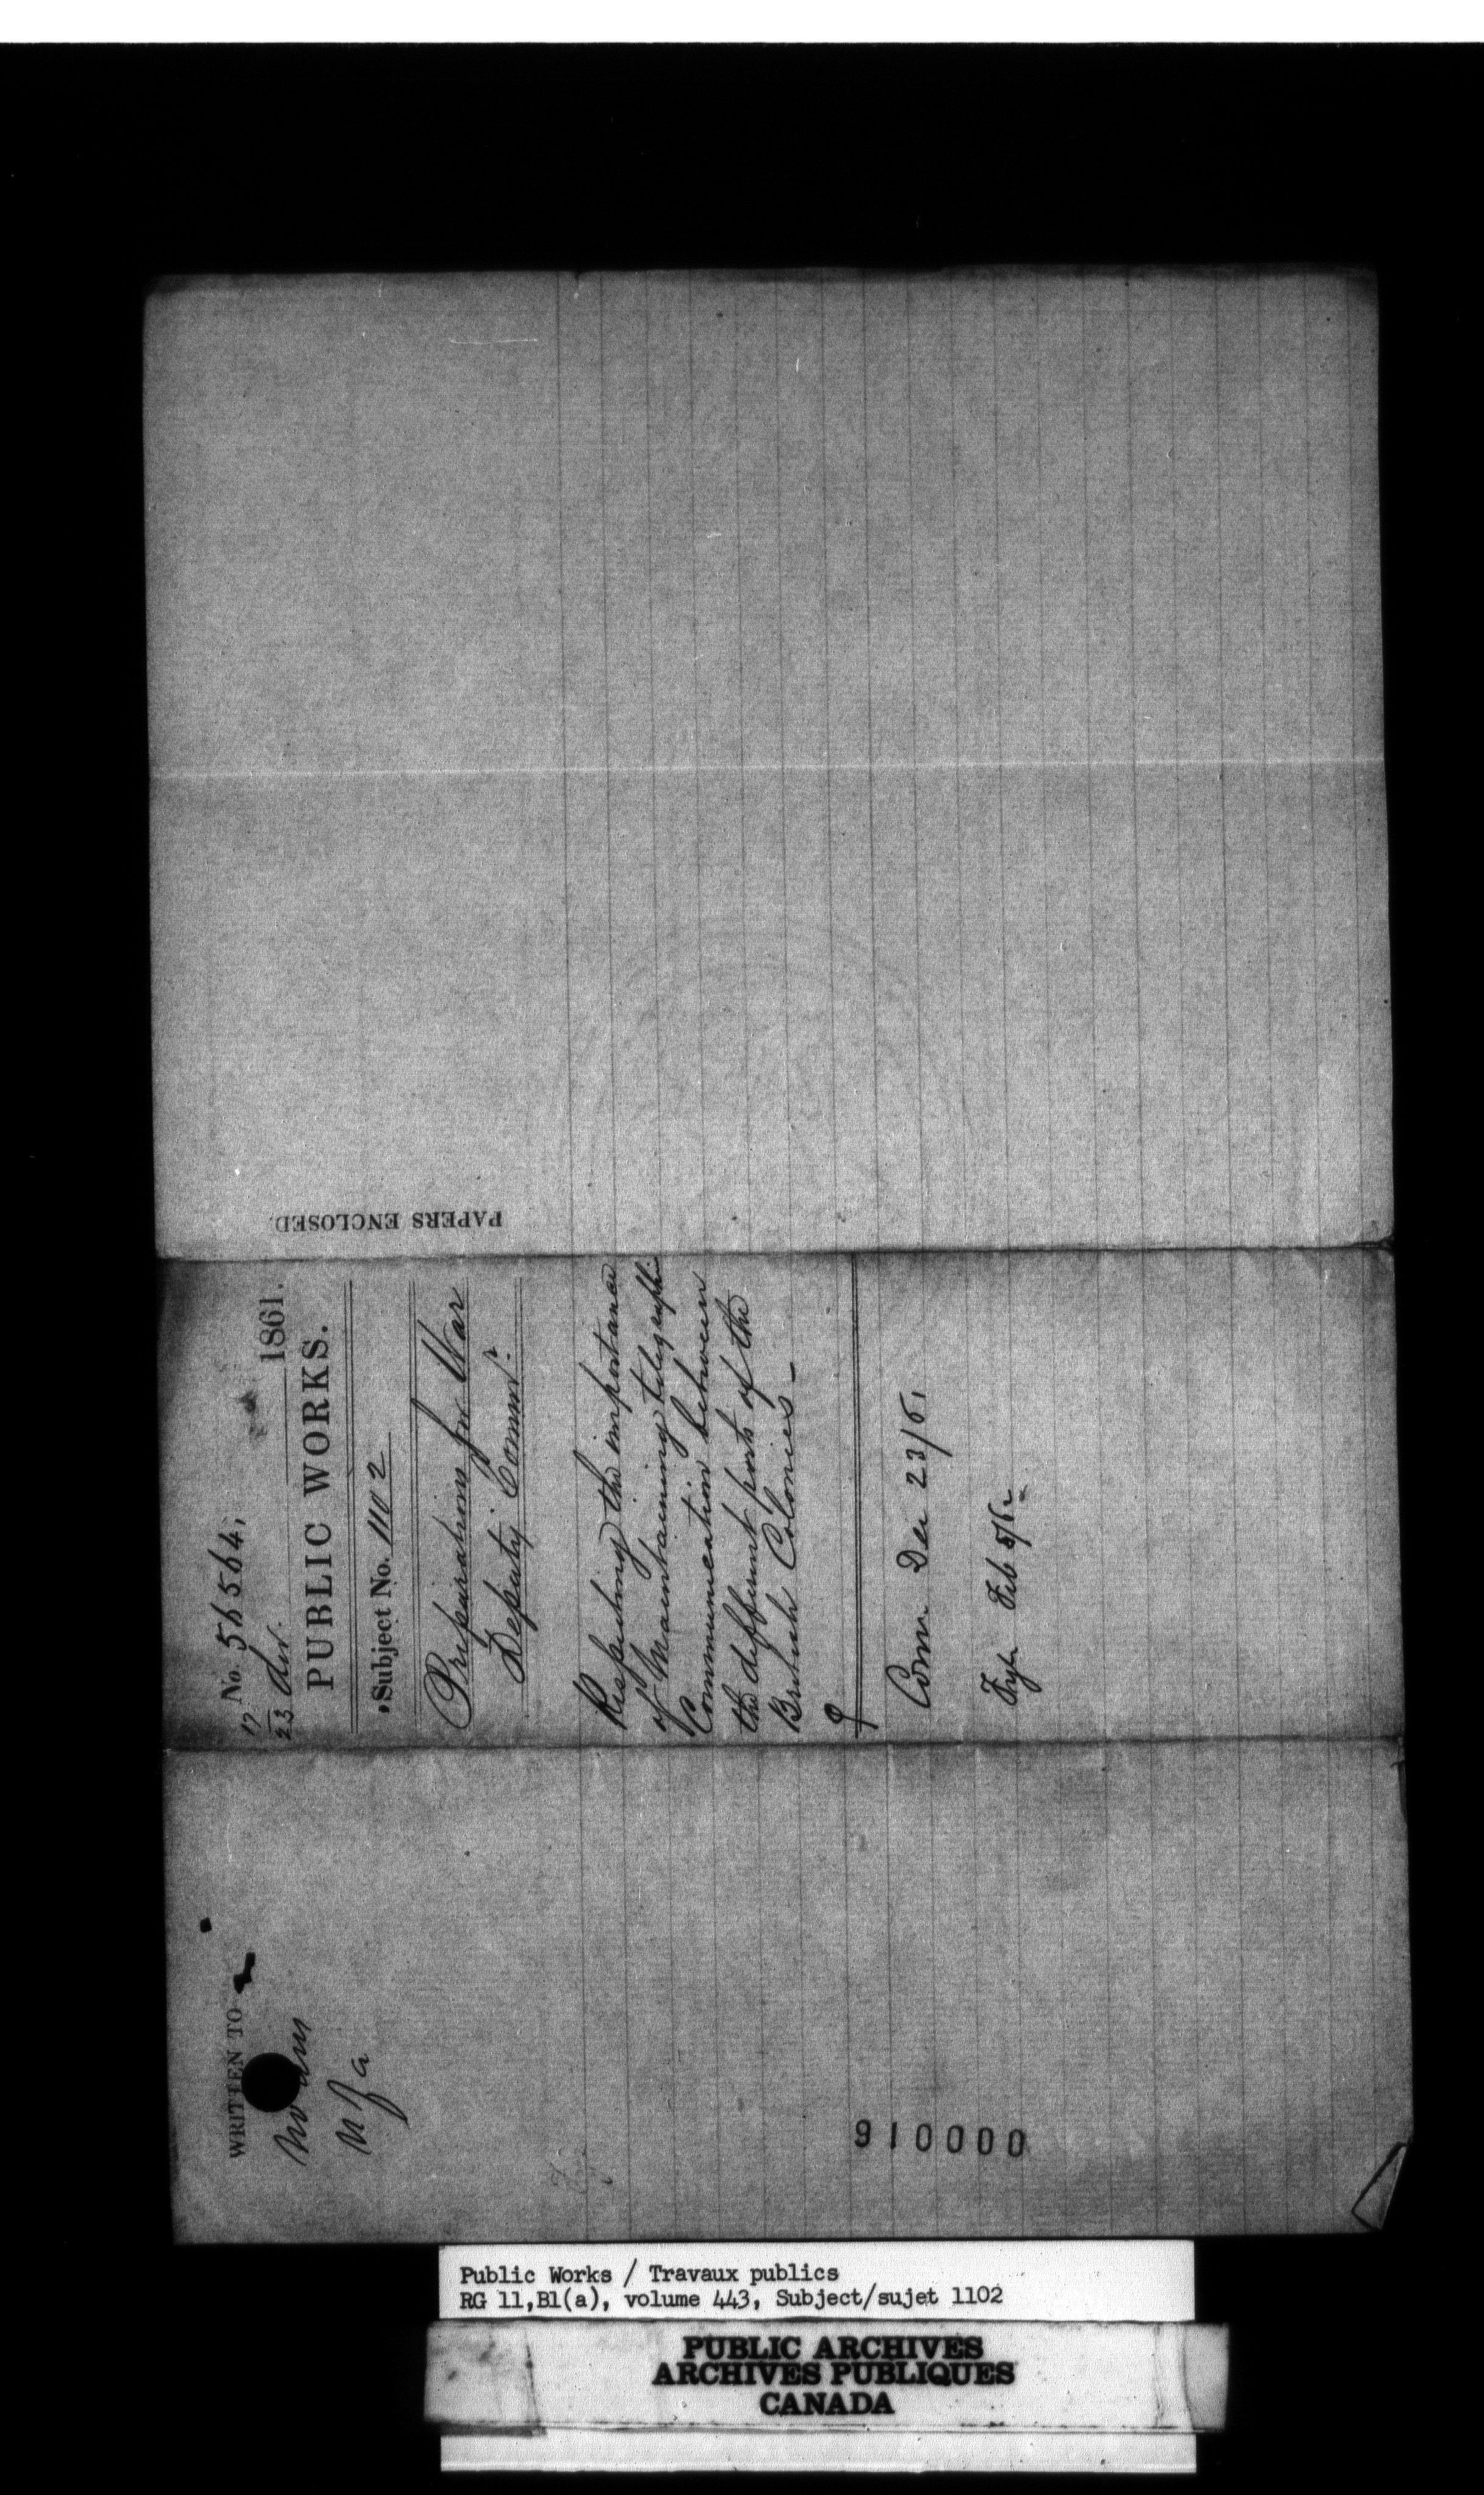 PAPERS ENCLOSED.
No. 56564,
17
23 Dec. 1861.
PUBLIC WORKS.
Subject No. 1102
Preparations for War
Deputy Commr.
Respecting the importance
of Maintaining telegraphic
Communication between
the different parts of the
British Colonies -
Com Dec 23/61
Fyle Feb 5/62
WRITTEN TO
No ans
910000
Public Works / Travaux publics
RG 11,B1(a), volume 443, Subject/sujet 1102
PUBLIC ARCHIVES
ARCHIVES PUBLIQUES
CANADA